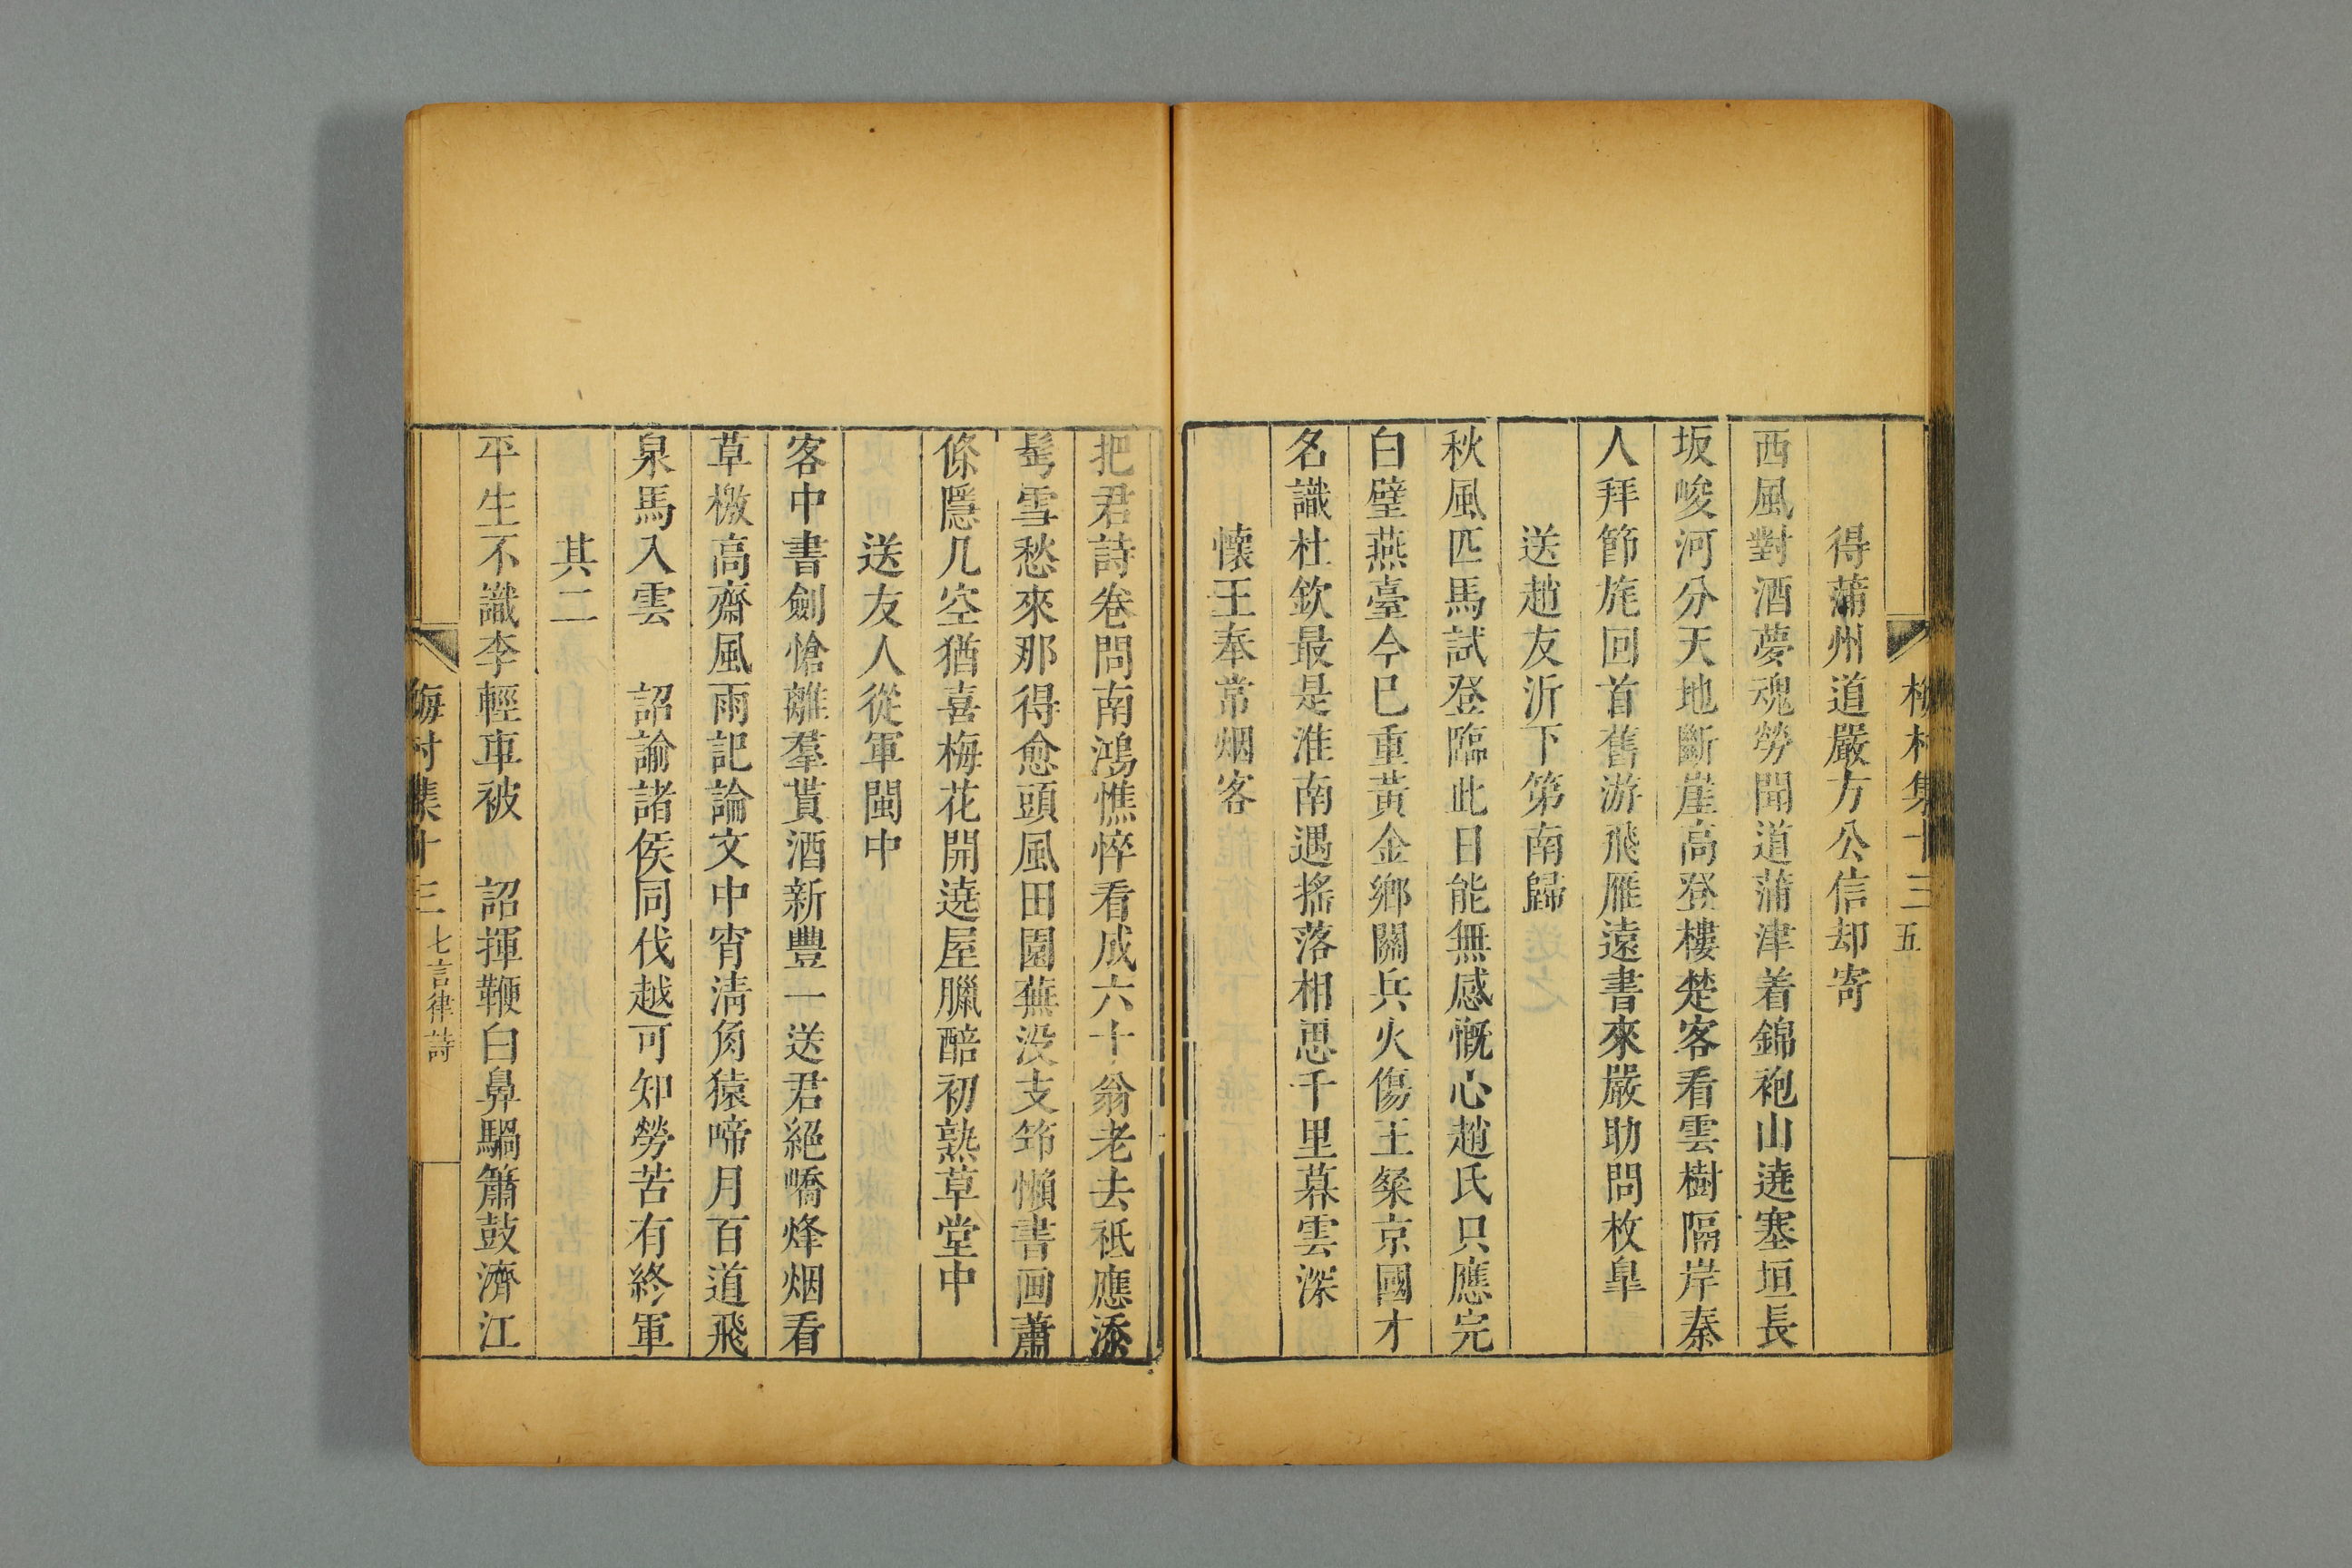 梅村集十三 五
得蒲州道嚴方公信却寄
西風對酒夢魂勞聞道蒲津着錦袍山遶塞垣長
坂峻河分天地斷崖高登樓楚客看雲樹隔岸秦
人拜節旄回首舊游飛雁遠書來嚴助問枚皐
送趙友沂下第南歸
秋風匹馬試登臨此日能無感慨心趙氏只應完
白璧燕臺今巳重黃金鄉關兵火傷王粲京國才
名識杜欽最是淮南遇搖落相思千里暮雲深
懷王奉常烟客
把君詩卷問南鴻憔悴看成六十翁老去祇應添
髩雪愁來那得愈頭風田園蕪没支笻懶書画蕭
條隱几空猶喜梅花開遶屋臘醅初熟草堂中
送友人從軍閩中
客中書劍愴離羣貰酒新豐一送君絕嶠烽烟看
草檄高齋風雨記論文中宵清角猿啼月百道飛
泉馬入雲 詔諭諸侯同伐越可知勞苦有終軍
其二
平生不識李輕車被 詔揮鞭白鼻騧簫鼓濟江
梅村集十三 七言律詩